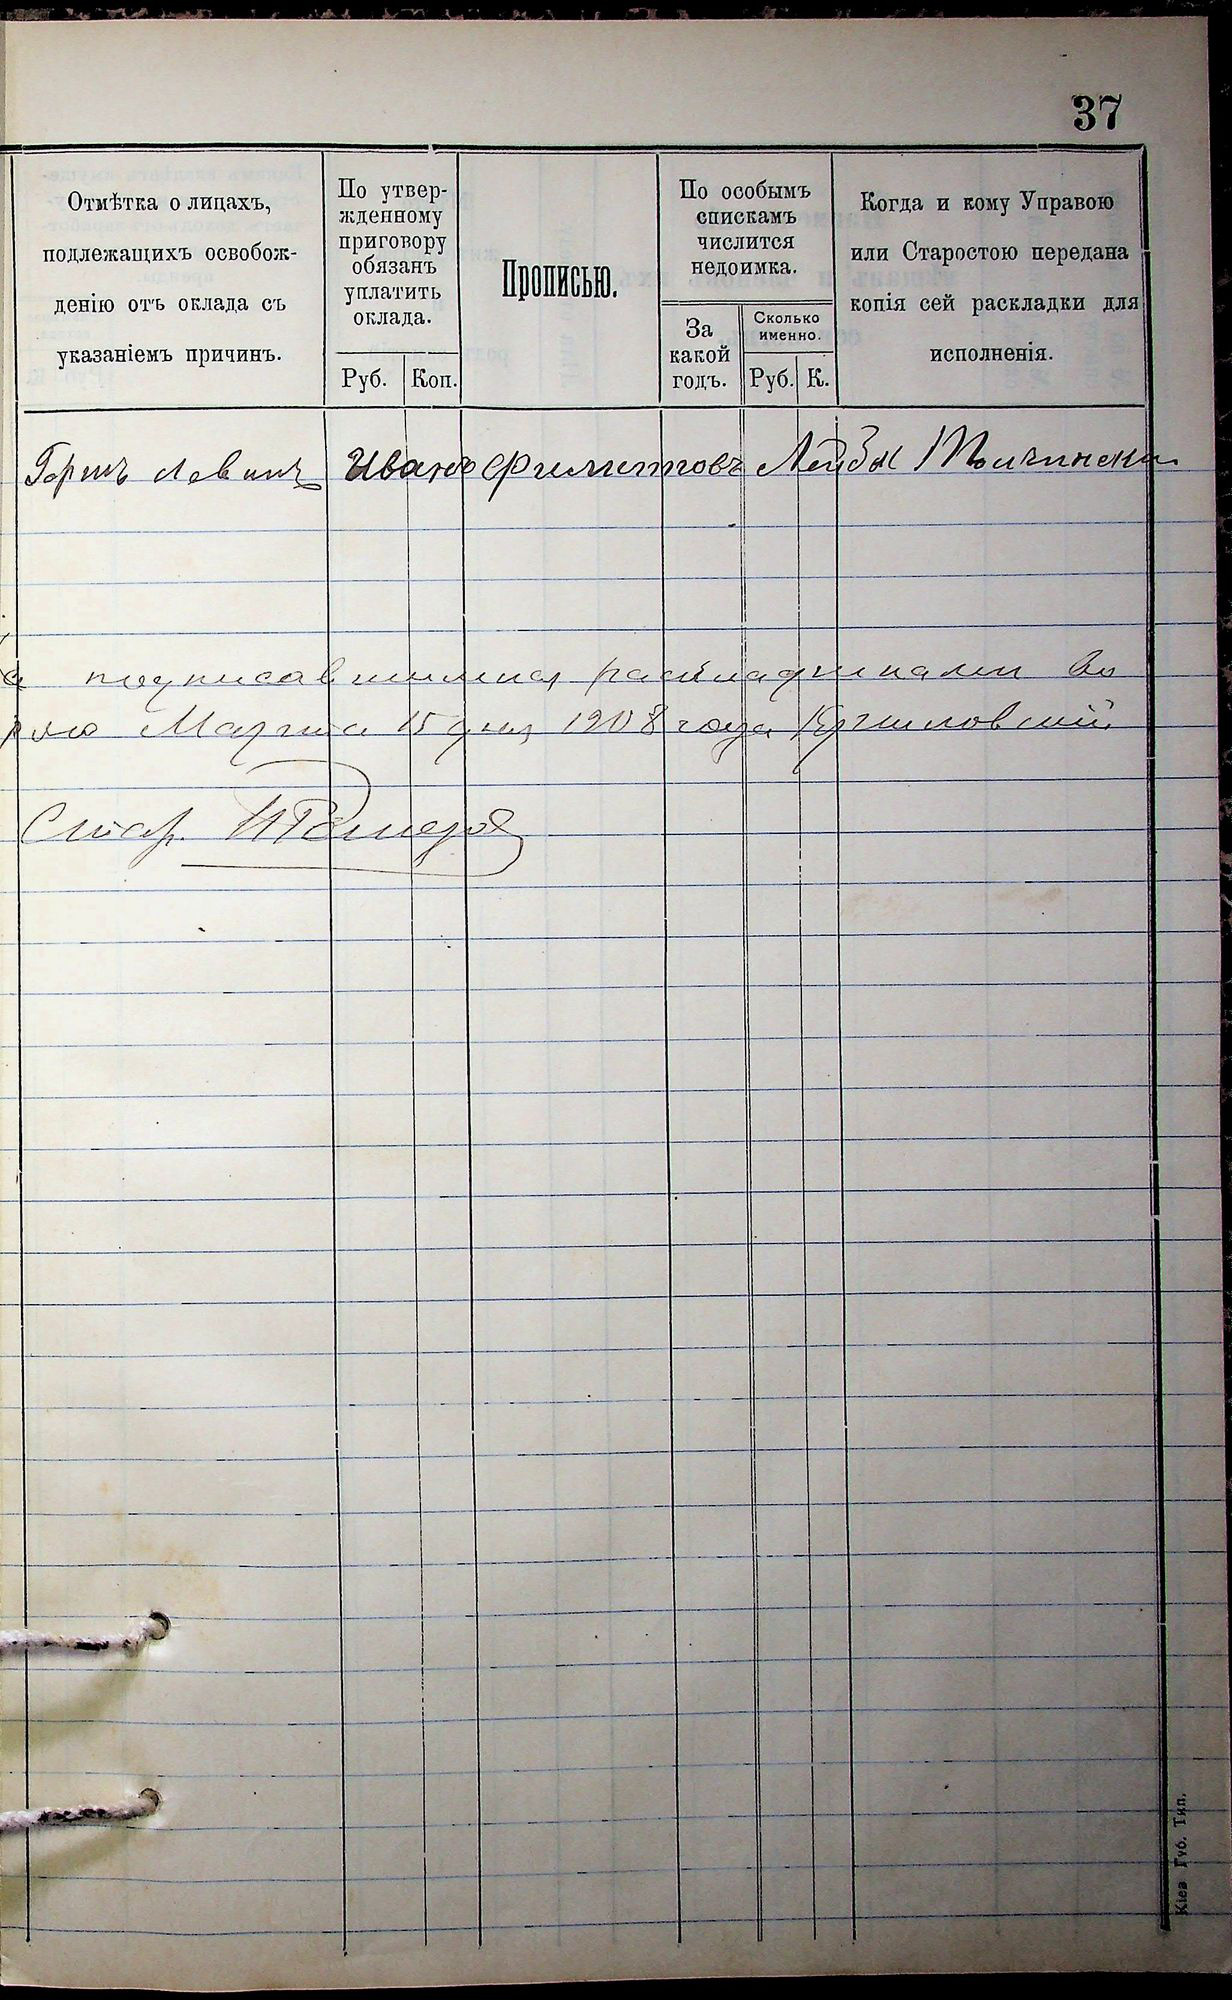 37
Отмѣтка о лицахъ,
подлежащихъ освобож-
денію отъ оклада съ
указаніемъ причинъ.
По утвер-
жденному
приговору
обязанъ
уплатить
оклада.
Руб.
Коп.
Прописью.
По особымъ
спискамъ
числится
недоимка.
За
какой
годъ.
Сколько
именно.
Руб.
К.
Когда и кому Управою
или Старостою передана
копія сей раскладки для
исполненія.
Левинъ Иванъ Филипповъ Лейбы
подписавшимися раскладчиками
Марта 15 дня 1908 года
Стар.
Кіев Губ. Тип.